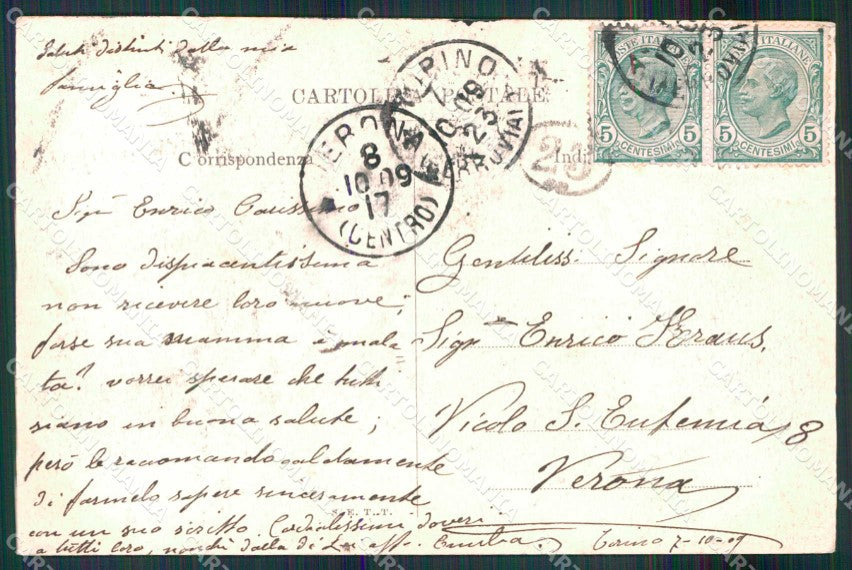 Saluti distinti dalla mia
famiglia.
CARTOLINA POSTALE
Corrispondenza
Indi
TORINO
10 09
23
FERROVIA
VERONA
8
10 09
17
(CENTRO)
20
POSTE ITALIANE
5 CENTESIMI 5
POSTE ITALIANE
5 CENTESIMI 5
10
23
FERROVIA
Sigr Enrico Carissimo
Sono dispiacentissima
non ricevere loro nuove;
forse sua mamma è mala
ta? vorrei sperare che tutti
siano in buona salute;
però le raccomando caldamente
di farmelo sapere sinceramente
con un suo scritto. Cordialissimi doveri
a tutti loro, nonchè dalla di Lei aff. Emilia. Torino 7-10-09
Gentiliss. Signore
Sigr Enrico Kraus.
Vicolo S. Eufemia, 8
Verona
S. E. T. T.
CARTOLINOMANIA